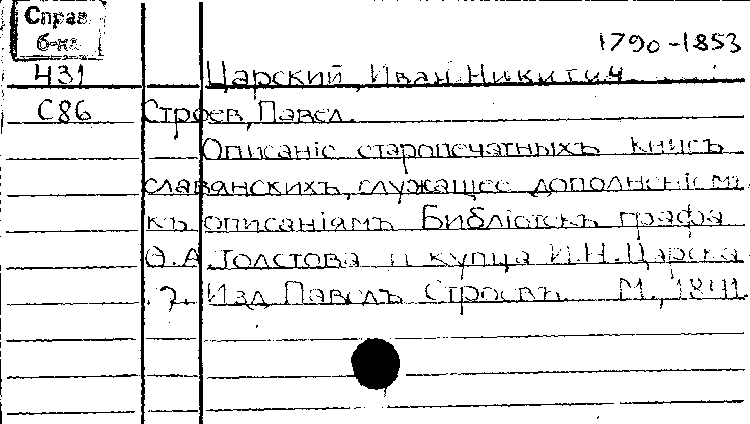 Справ.
б-ка
1790-1853
Ч31 Царский, Иван Никитич
С86 Строев, Павел.
Описаніе старопечатныхъ книгъ
славянскихъ, служащее дополненіемъ
къ описаніямъ Библіотекъ графа
Ѳ.А.Толстова и купца И.Н.Царска
.7. Изд Павелъ Строевъ. М., 1841